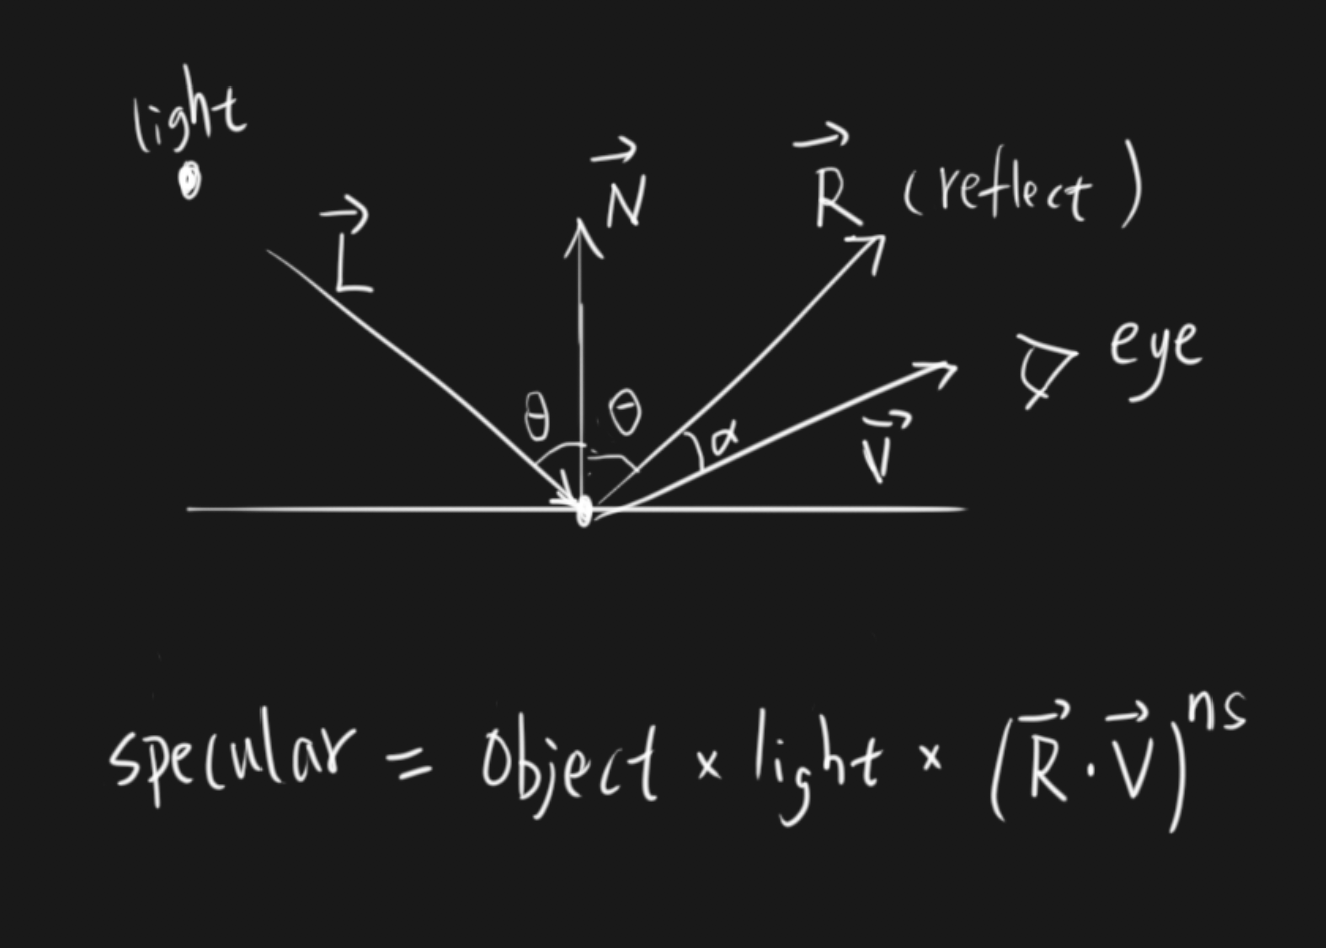 light
N⃗
R⃗ (reflect)
L⃗
eye
θ θ
α
V⃗
specular = Object × light × (R⃗ · V⃗)ⁿˢ